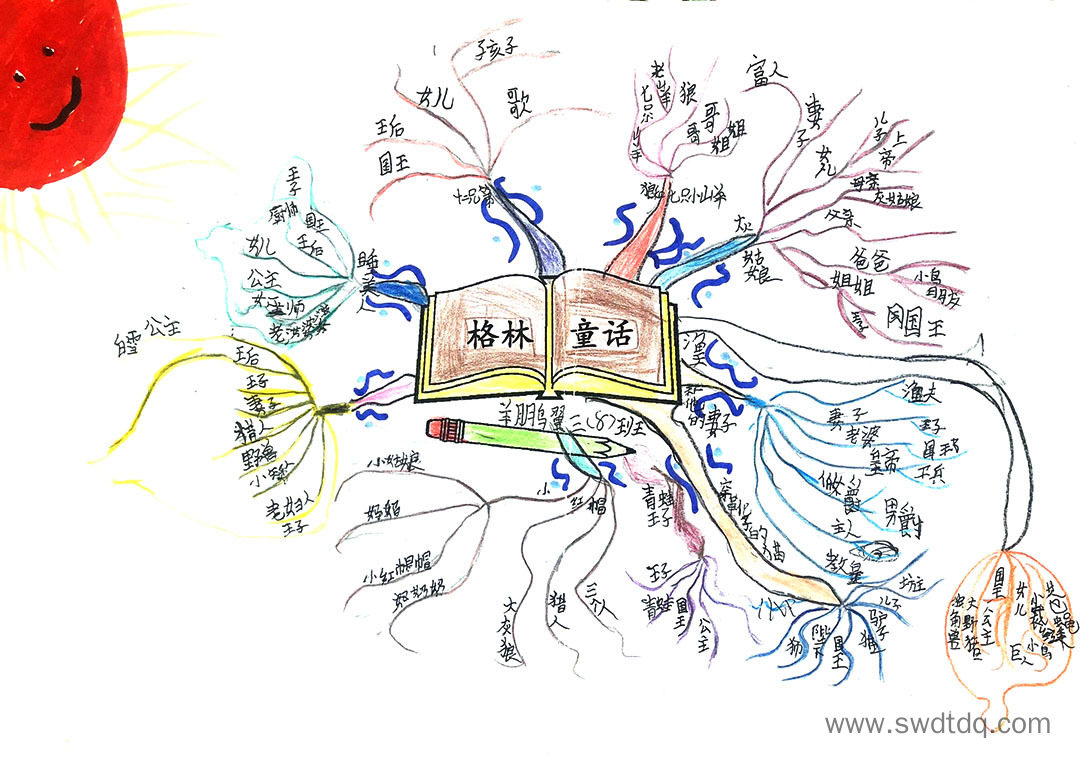 格林 童话
姜鹏翼 三(8)班
十兄弟
国王
王后
女儿
孩子
歌
狼七只小山羊
七只小羊
老山羊
狼
哥哥
姐姐
灰姑娘
富人
妻子
女儿
儿子
上帝
母亲
灰姑娘
父亲
爸爸
姐姐
小鸟
朋友
王子
国王
渔夫和他的妻子
渔夫
妻子
老婆
王子
皇帝
士兵
伯爵
男爵
主人
教皇
国王
女儿
公主
大野猪
独角兽
巨人
小鸟
苍蝇
穿靴子的猫
坊主
儿子
驴子
猫
国王
陛下
狗
青蛙王子
王子
青蛙
国王
公主
小红帽
小姑娘
妈妈
小红帽帽
奶奶
大灰狼
猎人
三个人
白雪公主
王后
王子
妻子
猎人
野兽
小矮人
老妇人
王子
睡美人
王子
厨师
国王
王后
女儿
公主
女巫师
老婆婆
www.swdtdq.com